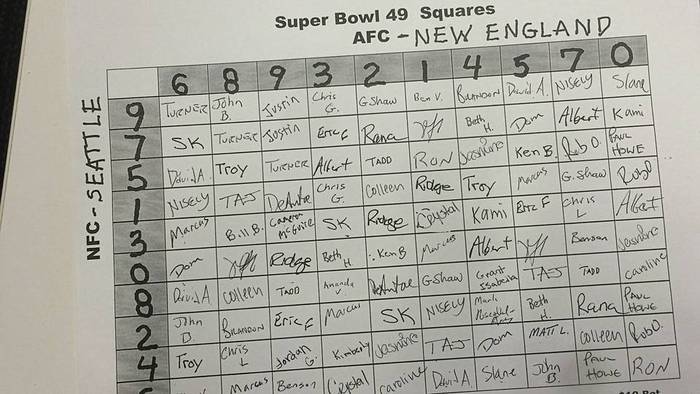 Super Bowl 49 Squares
AFC - NEW ENGLAND
NFC - SEATTLE
6 8 9 3 2 1 4 5 7 0
9 TURNER John B. Justin Chris G. GShaw Ben V. BRANDON David A. NISELY Slane
7 SK TURNER Justin Eric F Rana Jeff Beth H. Dom Albert Kami
5 David A. Troy TURNER Albert TADD RON Jasmine Ken B. Rob O. PAUL HOWE
1 NISELY TAJ DeAntae Chris G. Colleen Ridge Troy Marcus G. Shaw Rob O
3 Marcus Bill B. Cameron McGuire SK Ridge Crystal Kami Eric F Chris L Albert
0 Dom Jeff Ridge Beth H Ken B Marcus Albert Jeff Benson Jasmine
8 David A Colleen TADD Amanda V DeAntae GShaw Grant Isabella TAJ TADD Caroline
2 John B BRANDON Eric F Marcus SK NISELY Mark Beth H. Rana PAUL HOWE
4 Troy Chris L Jordan G. Kimberly Jasmine TAJ Dom MATT L. Colleen Rob O.
Marcus Benson Crystal Caroline David A Slane John B. PAUL HOWE RON